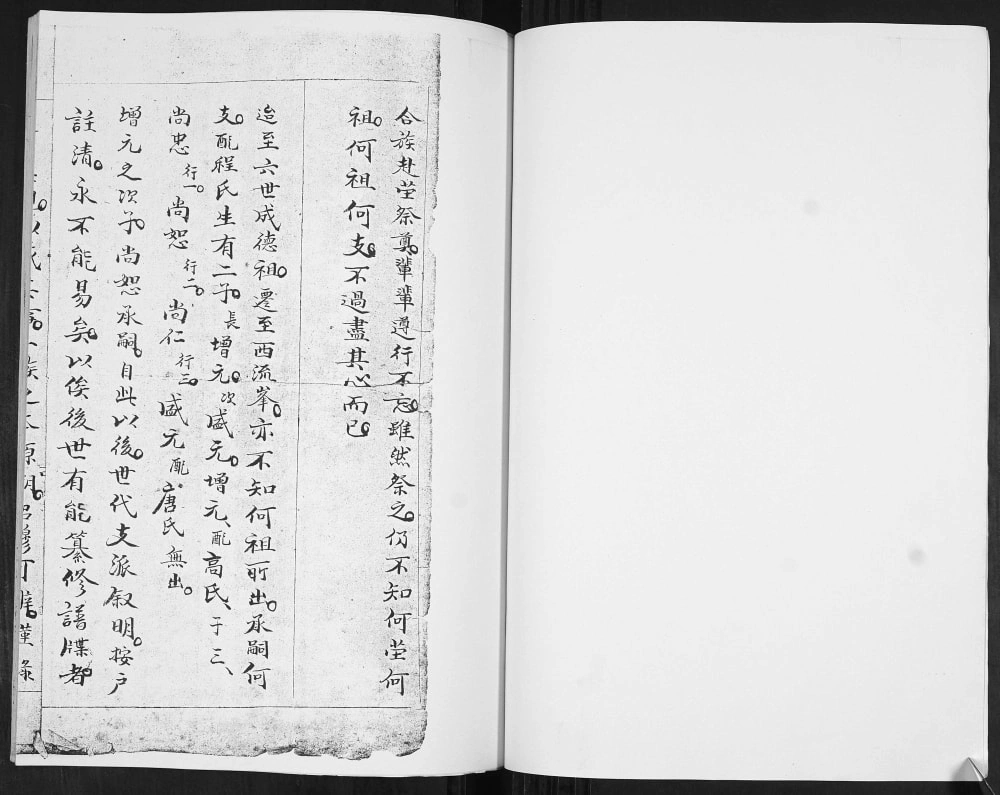 合族赴塋祭奠。輩輩遵行不忘。雖然祭之。仍不知何塋何
祖。何祖何支。不過盡其心而已。
迨至六世成德祖。遷至西流峯。亦不知何祖所出。承嗣何
支。配程氏生有二子。長增元。次盛元。增元、配高氏、于三、
尚忠行一。尚恕行二。尚仁行三。盛元配唐氏無出。
增元之次子。尚恕承嗣。自此以後。世代支派叙明。按户
註清。永不能易矣。以俟後世有能纂修譜牒者。